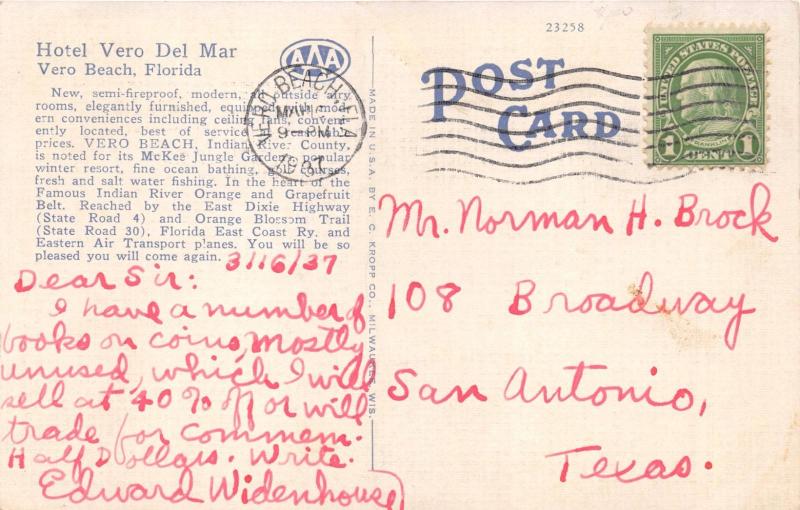 23258
Hotel Vero Del Mar
Vero Beach, Florida
AAA
New, semi-fireproof, modern, all outside airy
rooms, elegantly furnished, equipped with mod-
ern conveniences including ceiling fans, conveni-
ently located, best of service at reasonable
prices. VERO BEACH, Indian River County,
is noted for its McKee Jungle Gardens, popular
winter resort, fine ocean bathing, golf courses,
fresh and salt water fishing. In the heart of the
Famous Indian River Orange and Grapefruit
Belt. Reached by the East Dixie Highway
(State Road 4) and Orange Blossom Trail
(State Road 30), Florida East Coast Ry. and
Eastern Air Transport planes. You will be so
pleased you will come again.
3/16/37
Dear Sir:
I have a number of
books on coins, mostly
unused, which I will
sell at 40% off or will
trade for commem.
Half Dollars. Write.
Edward Widenhouse
MADE IN U.S.A. BY E. C. KROPP CO., MILWAUKEE, WIS.
POST
CARD
VERO BEACH, FLA.
MAR
9 - PM
1937
UNITED STATES POSTAGE
FRANKLIN
1 CENT 1
Mr. Norman H. Brock
108 Broadway
San Antonio,
Texas.